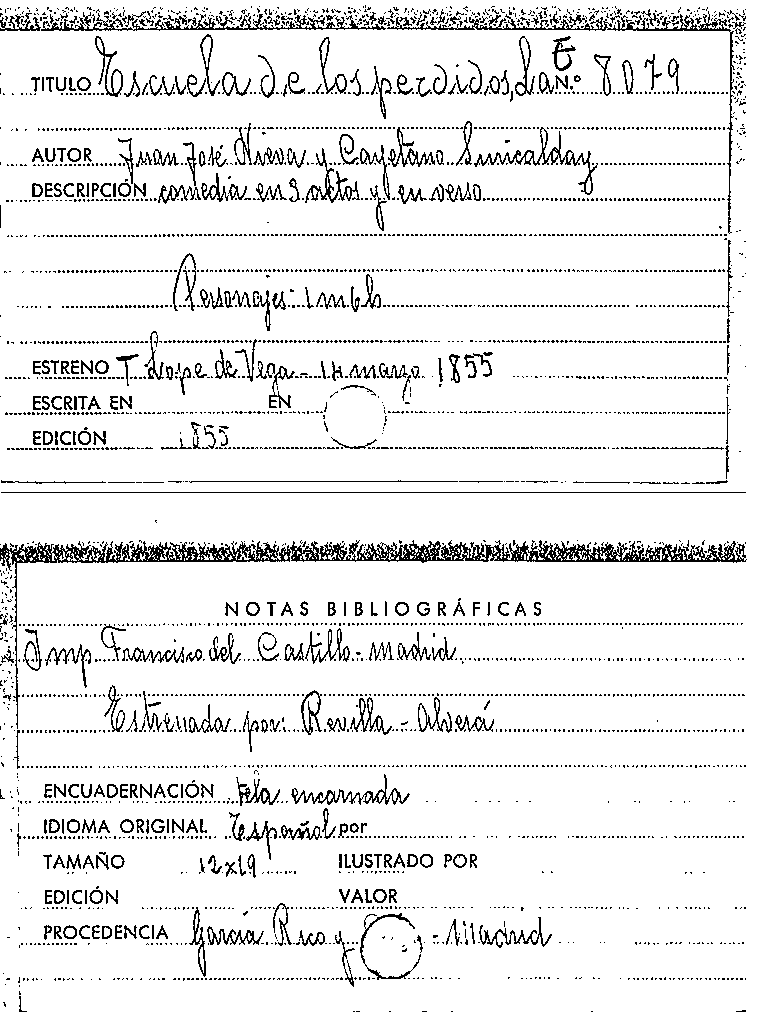 E
TITULO Escuela de los perdidos, La N.º 8079
AUTOR Juan José Nieva y Cayetano Suricalday
DESCRIPCIÓN comedia en 3 actos y en verso
Personajes: 1 m 6 h
ESTRENO T Lope de Vega - 14 marzo 1855
ESCRITA EN EN
EDICIÓN 1855
NOTAS BIBLIOGRÁFICAS
Imp. Francisco del Castillo - Madrid
Estrenada por: Revilla - Alverá
ENCUADERNACIÓN tela encarnada
IDIOMA ORIGINAL Español por
TAMAÑO 12x19 ILUSTRADO POR
EDICIÓN VALOR
PROCEDENCIA García Rico y - Madrid